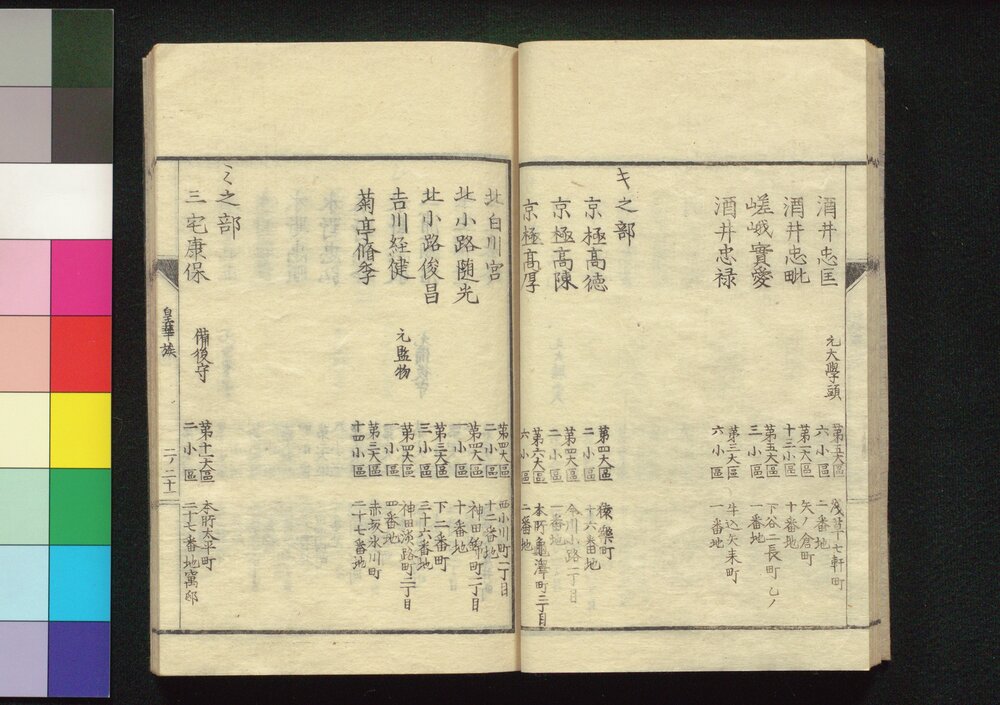 酒井忠匡
元大學頭
第五大區
六小區
浅草十七軒町
二番地
酒井忠毗
第一大區
十三小區
矢ノ倉町
十番地
嵯峨實愛
第五大區
三小區
下谷二長町乙ノ
一番地
酒井忠禄
第三大區
六小區
牛込矢来町
一番地
キ之部
京極高徳
第四大區
二小區
猿樂町
十六番地
京極高陳
第四大區
一小區
今川小路一丁目
一番地
京極高厚
第六大區
六小區
本所亀澤町二丁目
二番地
北白川宮
第四大區
二小區
西小川町一丁目
十二番地
北小路随光
第四大區
一小區
神田錦町二丁目
十番地
北小路俊昌
第三大區
三小區
下二番町
三十六番地
吉川経健
元監物
第四大區
一小區
神田淡路町二丁目
四番地
菊亭脩季
第三大區
十四小區
赤坂氷川町
二十七番地
ミ之部
三宅康保
備後守
第十一大區
二小區
本所太平町
二十七番地寓邸
皇華族
二ノ二十一